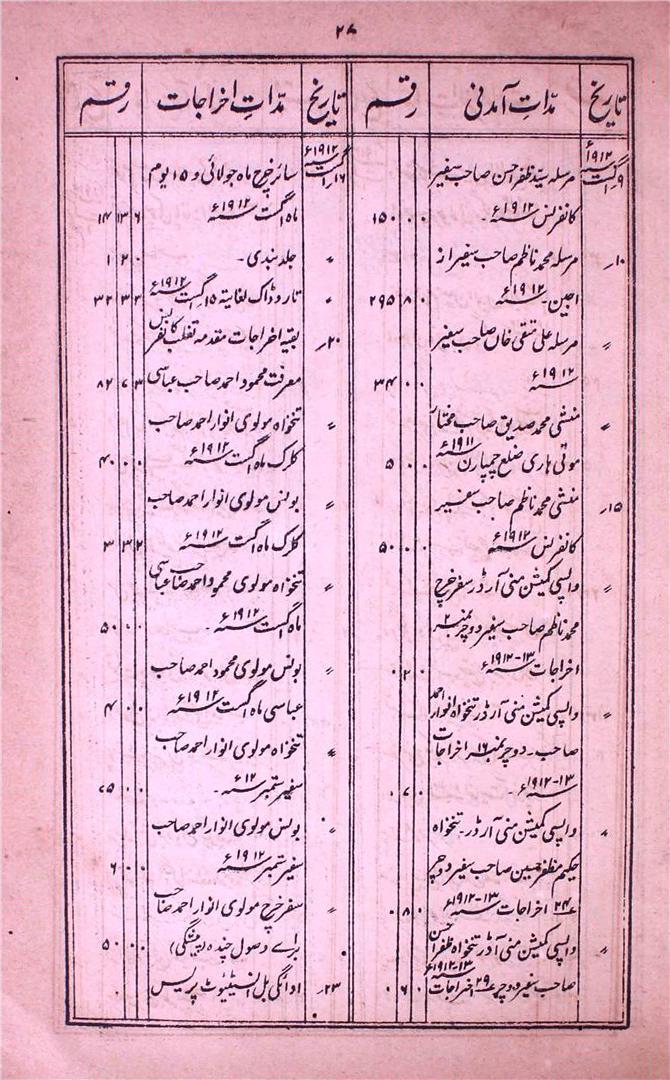 ۲۸
تاریخ مدّاتِ آمدنی رقم تاریخ مدّاتِ اخراجات رقم
۹ اگست ۱۹۱۲ء مرسلہ سید ظفر احسن صاحب سفیر
کانفرنس ۱۹۱۲ء۔ ۱۵۰ ۰ ۰
۱۰ مرسلہ محمد ناظم صاحب سفیر از
اجین۔ ۱۹۱۲ء ۲۹۵ ۸ ۰
〃 مرسلہ علی متقی خاں صاحب سفیر
۱۹۱۲ء ۳۴ ۰ ۰
〃 منشی محمد صدیق صاحب مختار
موتی ہاری ضلع چمپارن ۱۹۱۱ء ۵ ۰ ۰
۱۵ منشی محمد ناظم صاحب سفیر
کانفرنس ۱۹۱۲ء ۵۰ ۰ ۰
〃 واپسی کمیشن منی آرڈر سفر خرچ
محمد ناظم صاحب سفیر ووچر نمبر ۲
اخراجات ۱۳-۱۹۱۲ء ۰ ۲ ۰
〃 واپسی کمیشن منی آرڈر تنخواہ انوار احمد
صاحب۔ ووچر نمبر ۱۶ اخراجات
۱۳-۱۹۱۲ء۔ ۰ ۷ ۰
〃 واپسی کمیشن منی آرڈر۔ تنخواہ
حکیم مظفر حسین صاحب سفیر ووچر
۲۴ اخراجات ۱۳-۱۹۱۲ء ۰ ۸ ۰
〃 واپسی کمیشن منی آرڈر تنخواہ ظفر احسن
صاحب سفیر ووچر ۲۹ اخراجات ۱۳-۱۹۱۲ء ۰ ۶ ۰
۱۶ اگست ۱۹۱۲ء سائر خرچ ماہ جولائی و ۱۵ یوم
ماہ اگست ۱۹۱۲ء ۱۴ ۱۳ ۶
〃 جلد بندی۔ ۱ ۲ ۰
〃 تار و ڈاک لغایتہ ۱۵ اگست ۱۹۱۲ء ۳۲ ۳ ۳
۲۰ بقیہ اخراجات مقدمہ تغلب کانفرنس
معرفت محمود احمد صاحب عباسی ۸۲ ۷ ۳
〃 تنخواہ مولوی انوار احمد صاحب
کلرک ماہ اگست ۱۹۱۲ء ۴۰ ۰ ۰
〃 بونس مولوی انوار احمد صاحب
کلرک ماہ اگست ۱۹۱۲ء ۳ ۳ ۲
〃 تنخواہ مولوی محمود احمد صاحب عباسی
ماہ اگست ۱۹۱۲ء۔ ۵۰ ۰ ۰
〃 بونس مولوی محمود احمد صاحب
عباسی ماہ اگست ۱۹۱۲ء ۴ ۰ ۰
〃 تنخواہ مولوی انوار احمد صاحب
سفیر ستمبر ۱۲ء۔ ۷۵ ۰ ۰
〃 بونس مولوی انوار احمد صاحب
سفیر ستمبر ۱۹۱۲ء ۶ ۰ ۰
〃 سفر خرچ مولوی انوار احمد صاحب
برائے وصول چندہ (پیشگی) ۵۰ ۰ ۰
۲۳ ادائگی بل انسٹیٹیوٹ پریس